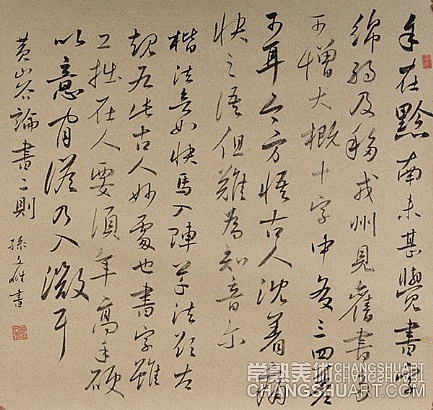 在黔南未甚覺書字
綿弱及移戎州見舊書多
可憎大概十字中有三四差
可耳今方悟古人沈着痛
快之語但難為知音尔
楷法欲如快馬入陣草法欲左
此古人妙處也書字雖
工拙在人要須年高手硬
意淡乃入微耳
黃山谷論書二則 孫書
常熟美术